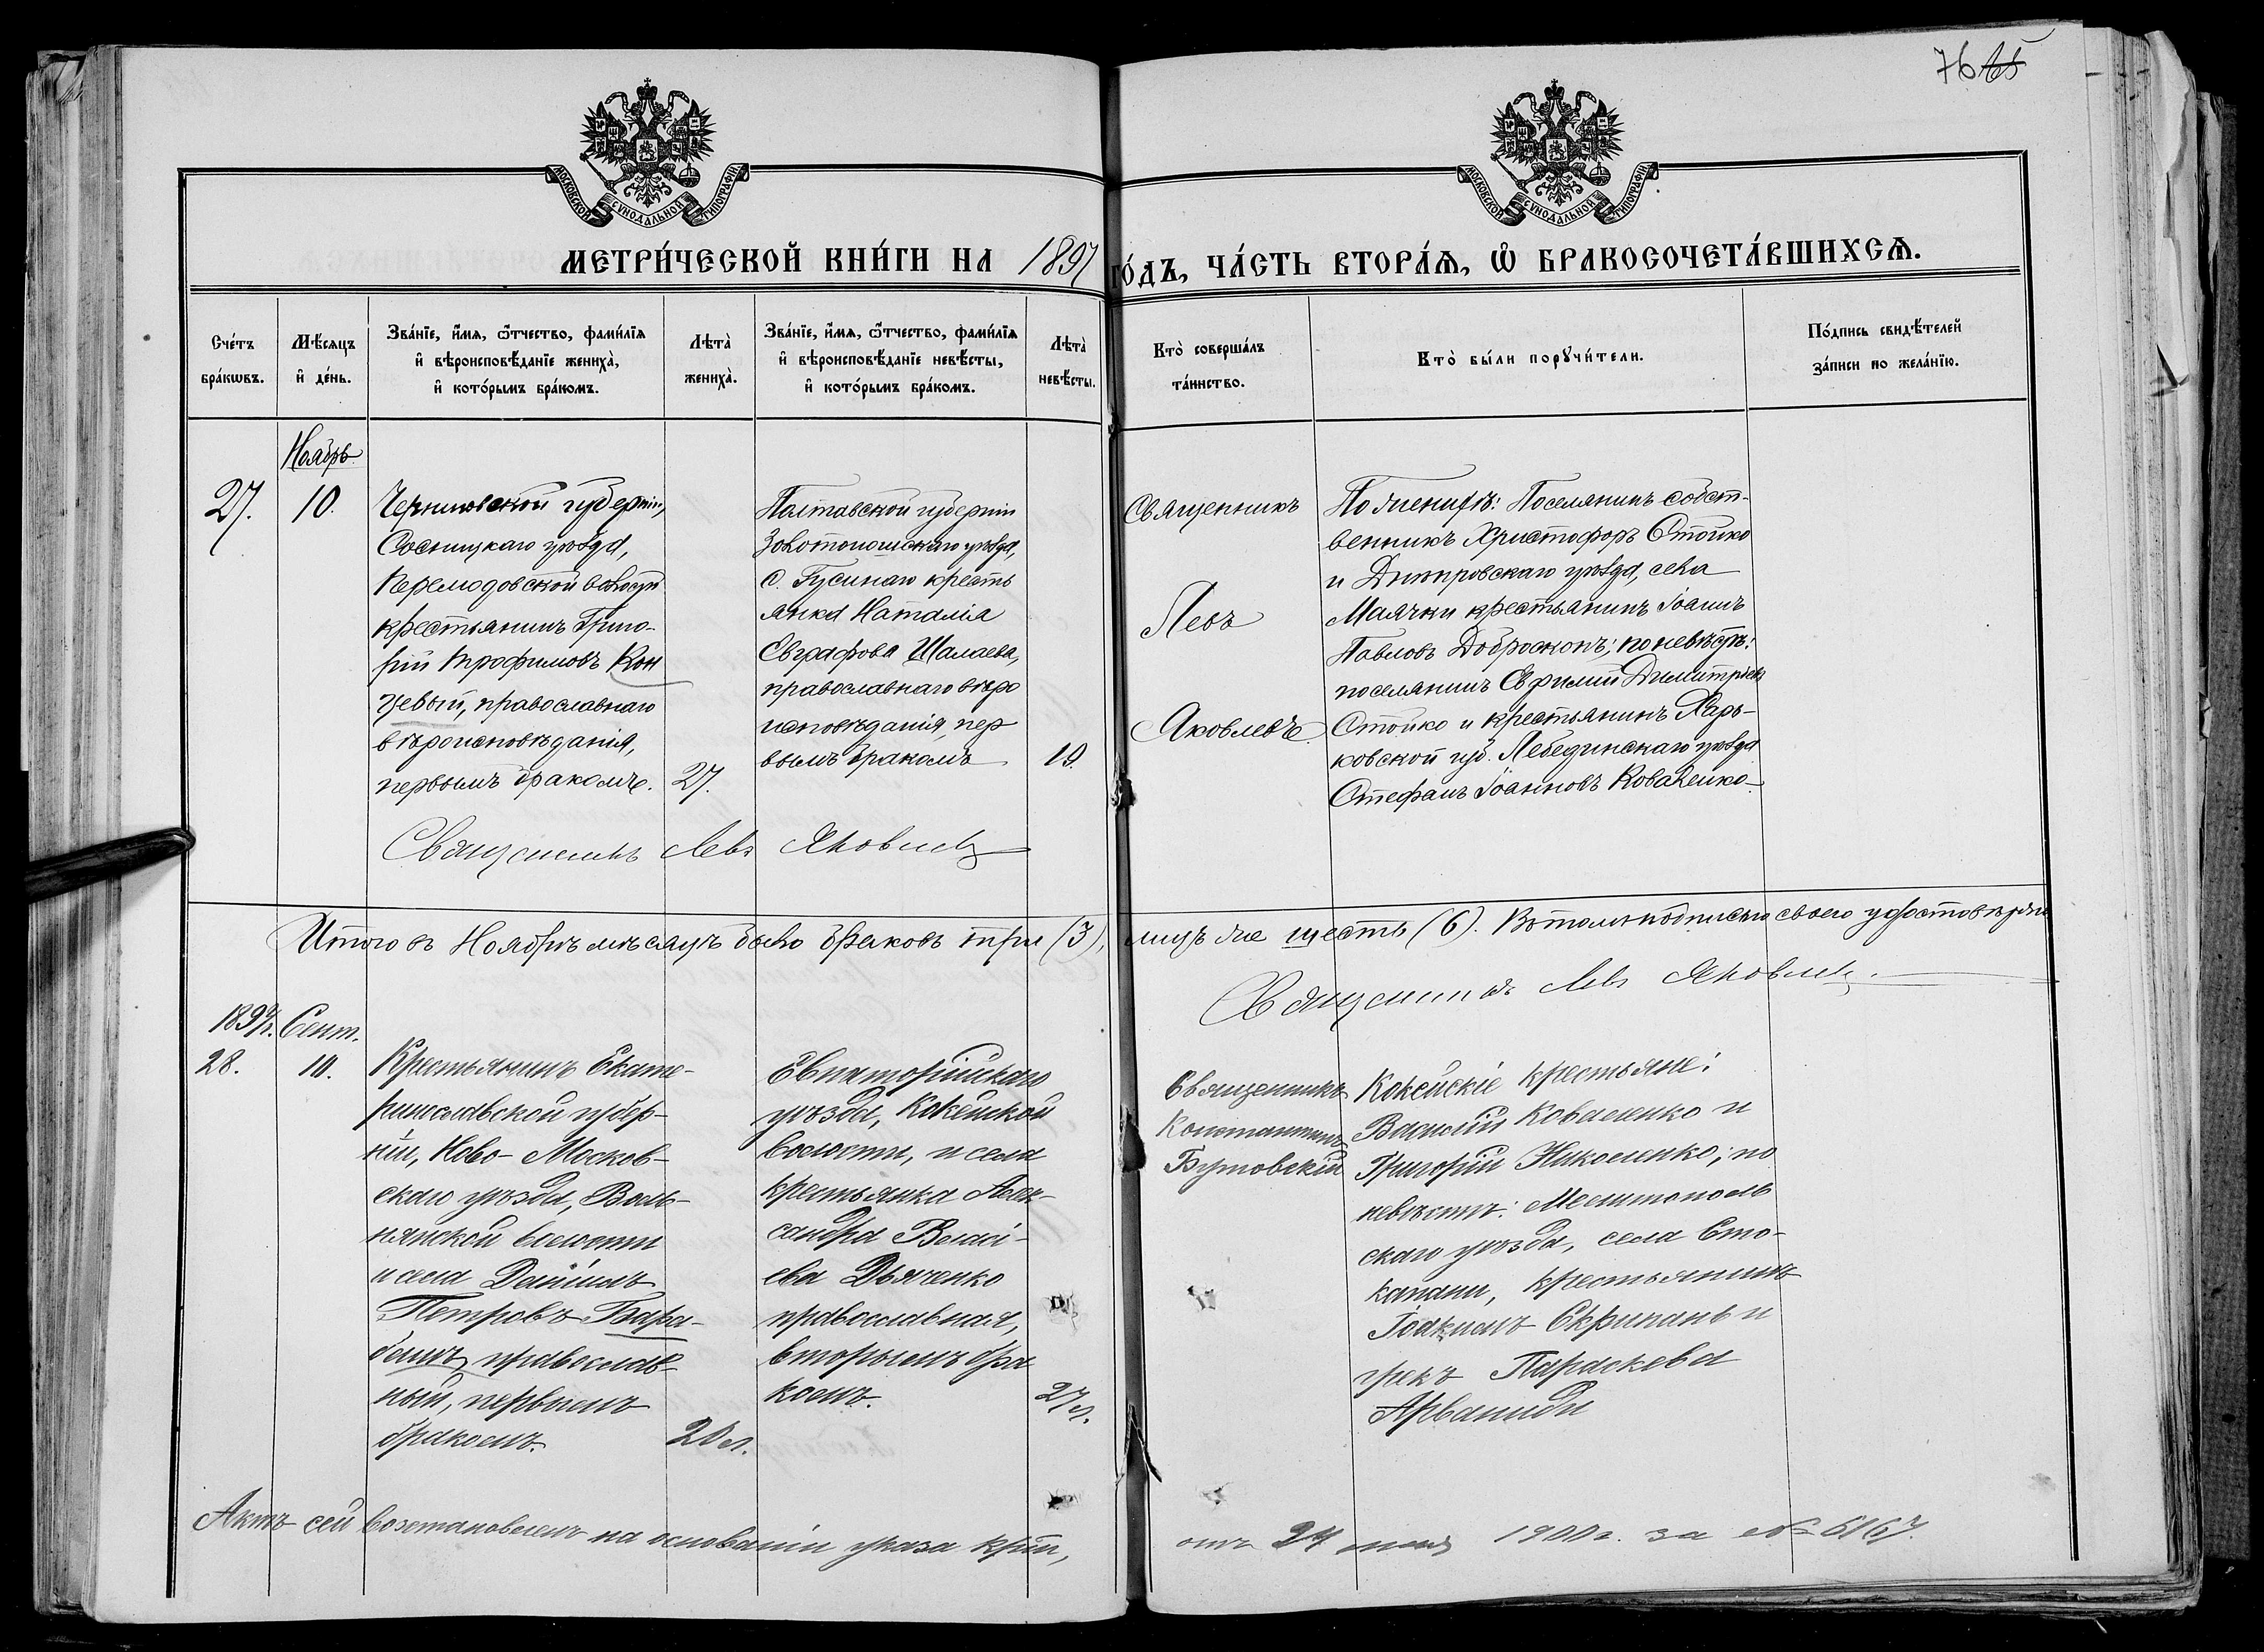 76
МОСКОВСКОЙ СѴНОДАЛЬНОЙ ТИПОГРАФІИ
МОСКОВСКОЙ СѴНОДАЛЬНОЙ ТИПОГРАФІИ
МЕТРИ́ЧЕСКОЙ КНИ́ГИ НА 1897 ГО́ДЪ, ЧА́СТЬ ВТОРА́Я, Ѽ БРАКОСОЧЕТА́ВШИХСЯ.
Сче́тъ
бра́кѡвъ.
Мѣ́сяцъ
и҆ де́нь.
Зва́нїе, и҆́мя, ѻ҆́тчество, фами́лїя
и҆ вѣроисповѣ́данїе женихà,
и҆ кото́рымъ бра́комъ.
Лѣтà
женихà.
Зва́нїе, и҆́мя, ѻ҆́тчество, фами́лїя
и҆ вѣроисповѣ́данїе невѣ́сты,
и҆ кото́рымъ бра́комъ.
Лѣтà
невѣ́сты.
Кто̀ соверша́лъ
та́инство.
Кто̀ бы́ли порꙋчи́тели.
По́дпись свидѣ́телей
за́писи по жела́нїю.
Ноябрь
27.
10.
Черниговской губерніи,
Сосницкаго уѣзда,
волости
крестьянинъ Григо-
рій Трофимовъ Кон
цевый, православнаго
вѣроисповѣданія,
первымъ бракомъ.
27.
Полтавской губерніи
Золотоношскаго уѣзда,
с. Гусинаго кресть
янка Наталія
Евграфова Шалаева,
православнаго вѣро
исповѣданія, пер
вымъ бракомъ
19.
Священникъ
Левъ
Яковлевъ.
По женихѣ: Поселянинъ собст-
венникъ Христофоръ Стойко
и Днѣпровскаго уѣзда, села
Маячки крестьянинъ Іоаннъ
Павловъ Доброскокъ; по невѣстѣ:
поселянинъ Евфимій Димитріевъ
Стойко и крестьянинъ Харь-
ковской губ. Лебединскаго уѣзда
Стефанъ Іоанновъ Коваленко
Священникъ Левъ Яковлевъ
Итого въ Ноябрѣ мѣсяцѣ было браковъ три (3), лицъ же шесть (6). Въ томъ подписью своею удостовѣряю
Священникъ Левъ Яковлевъ.
1897 г. Сент.
28.
10.
Крестьянинъ Екате-
ринославской губер-
ніи, Ново-Москов-
скаго уѣзда, Воль-
нянской волости
и села Даніилъ
Петровъ Бара-
башъ, православ-
ный, первымъ
бракомъ.
20 л.
Евпаторійскаго
уѣзда, Кокейской
волости, и села
крестьянка Алек-
сандра Власі-
ева Дьяченко
православная,
вторымъ бра
комъ.
27 л.
Священникъ
Константинъ
Бутовскій
Кокейскіе крестьяне:
Василій Коваленко и
Григорій Николенко; по
невѣстѣ: Мелитополь
скаго уѣзда, села Сто-
капани, крестьянинъ
Іоакимъ Скрипань и
грекъ Параскева
Арваниди
Актъ сей возстановленъ на основаніи указа
отъ 24 1900 г. за № 6167.